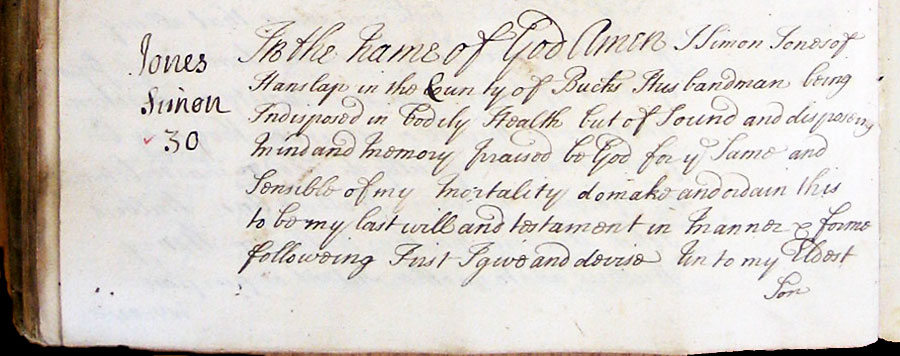 Jones
Simon
30
In the Name of God Amen I Simon Jones of
Hanslap in the County of Bucks Husbandman being
Indisposed in bodily Health but of Sound and disposeing
Mind and Memory praised be God for yᵉ Same and
Sensible of my Mortality do make and ordain this
to be my last will and testament in Manner & forme
followeing First I give and devise Un to my Eldest
Son